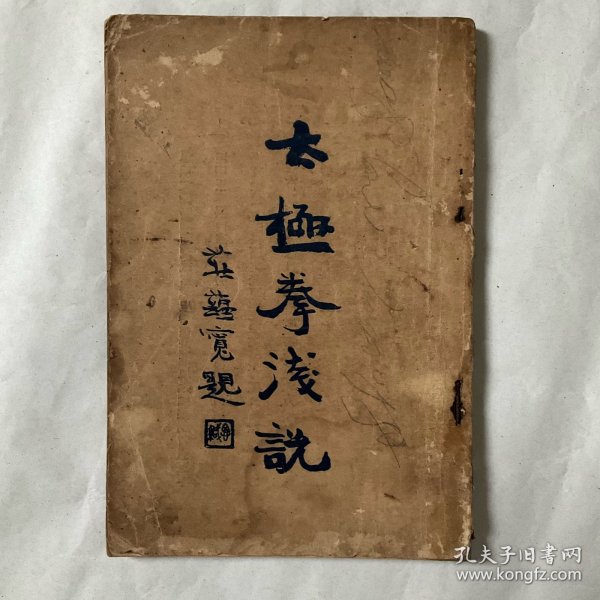 太極拳淺説
莊蘊寬題
孔夫子旧书网
www.kongfz.com